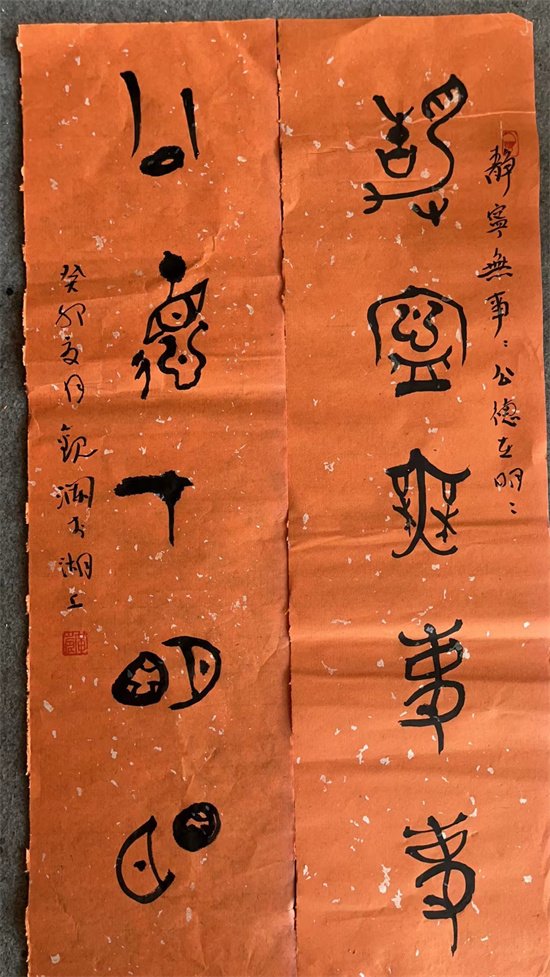 靜寧無事〻公德在明〻
靜寧無事事
公德在明明
癸卯夏月觀瀾书湖上